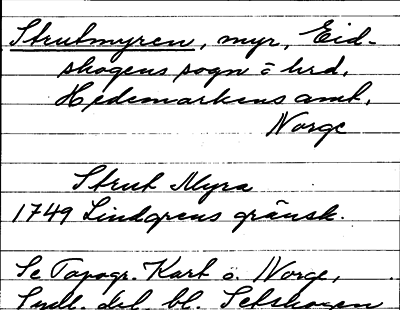 Strutmyren, myr, Eid-
skogens sogn o hrd,
Hedemarkens amt,
Norge
Strut Myra
1749 Lindgrens gränsk.
Se Topogr. Kart o. Norge,
del bl.